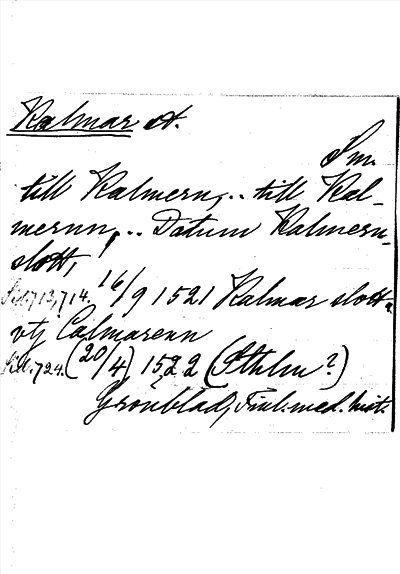 Kalmar st.
Sm.
till Kalmern, .. till Kal-
mernn, .. Datum Kalmern-
slott, 16/9 1521 Kalmar slott.
vtj Calmarenn
724. (20/4) 1522 (Sthlm?)
Grönblad, Finl. med. hist.